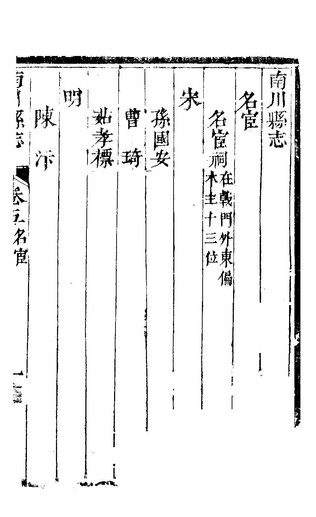 南川縣志
名宦
名宦祠在戟門外東偏木主十三位
宋
孫國安
曹琦
茹孝標
明
陳汴
南川縣志
卷五名宦
一